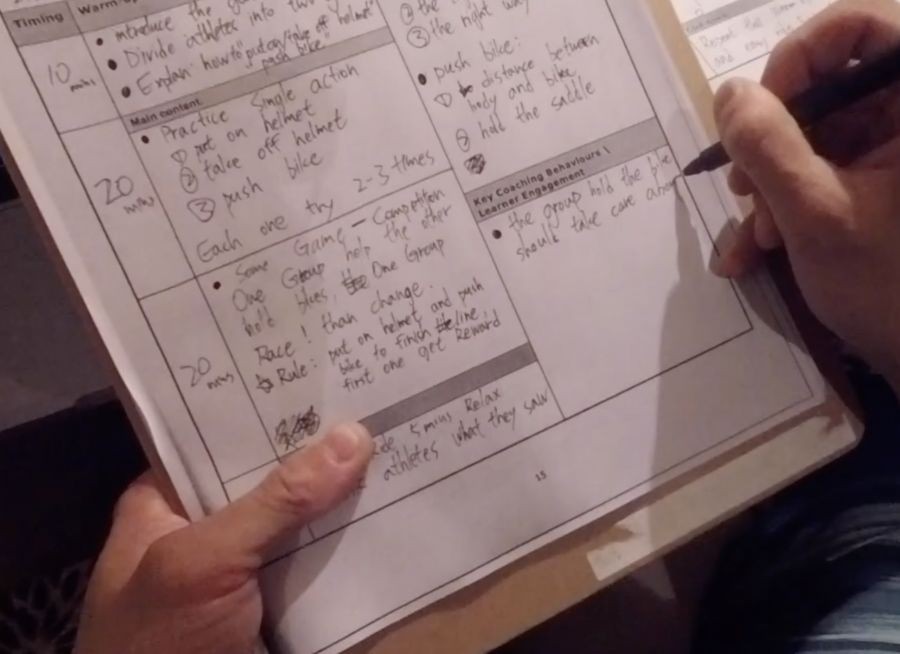 Timing
Warm-up
10 mins
• introduce the
• Divide athletes into two
• Explain: how to put on/take off helmet
"push bike"
Main content
20 mins
• Practice Single action
① put on helmet
② take off helmet
③ push bike
Each one try 2-3 times
20 mins
• Some Game - Competition
One Group help the other
hold bikes, One Group
Race! than change.
Rule: put on helmet and push
bike to finish line,
first one get Reward
5 mins Relax
athletes what they saw
② the
③ the right way
• push bike:
① distance between
body and bike
② hold the saddle
Key Coaching Behaviours \
Learner Engagement
• the group hold the bike
should take care
15